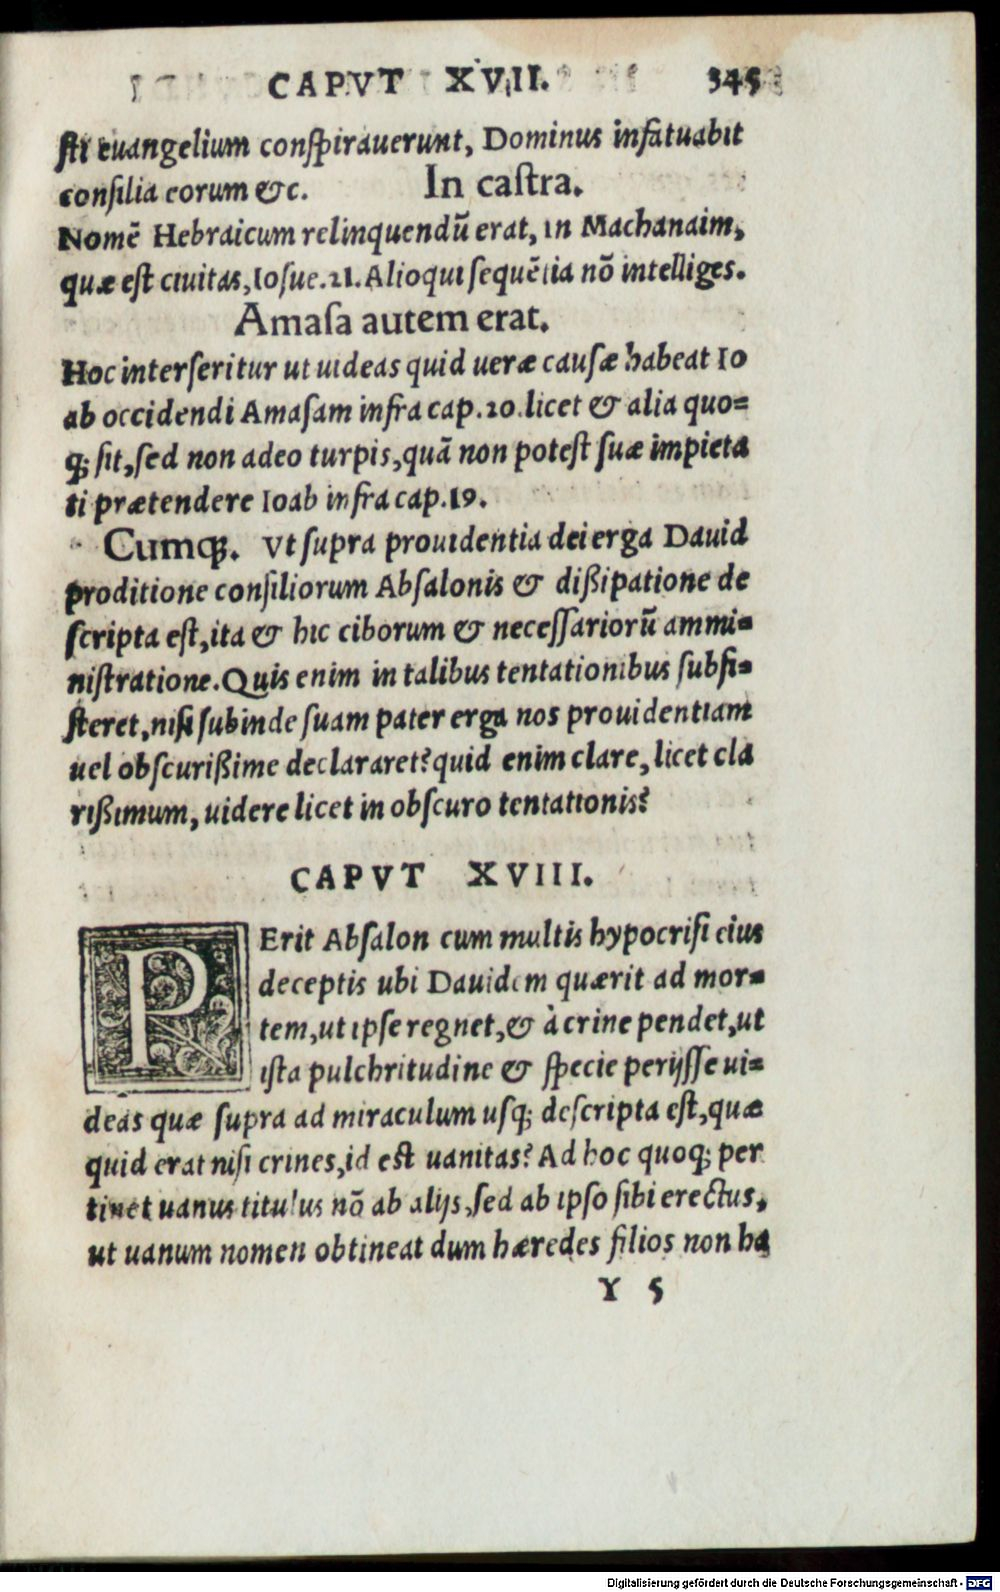 CAPVT XVII. 345
sti euangelium conspirauerunt, Dominus infatuabit
consilia eorum &c. In castra.
Nomē Hebraicum relinquendū erat, in Machanaim,
quæ est ciuitas, Iosue.21. Alioqui sequētia nō intelliges.
Amasa autem erat.
Hoc interseritur ut uideas quid ueræ causæ habeat Io
ab occidendi Amasam infra cap.20. licet & alia quo=
q; sit, sed non adeo turpis, quā non potest suæ impieta
ti prætendere Ioab infra cap.19.
Cumq;. Vt supra prouidentia dei erga Dauid
proditione consiliorum Absalonis & dißipatione de
scripta est, ita & hic ciborum & necessariorū ammi=
nistratione. Quis enim in talibus tentationibus subsi=
steret, nisi subinde suam pater erga nos prouidentiam
uel obscurißime declararet? quid enim clare, licet cla
rißimum, uidere licet in obscuro tentationis?
CAPVT XVIII.
PErit Absalon cum multis hypocrisi eius
deceptis ubi Dauidem quærit ad mor=
tem, ut ipse regnet, & à crine pendet, ut
ista pulchritudine & specie perijsse ui=
deas quæ supra ad miraculum usq; descripta est, quæ
quid erat nisi crines, id est uanitas? Ad hoc quoq; per
tinet uanus titulus nō ab alijs, sed ab ipso sibi erectus,
ut uanum nomen obtineat dum hæredes filios non ha
Y 5
Digitalisierung gefördert durch die Deutsche Forschungsgemeinschaft - DFG